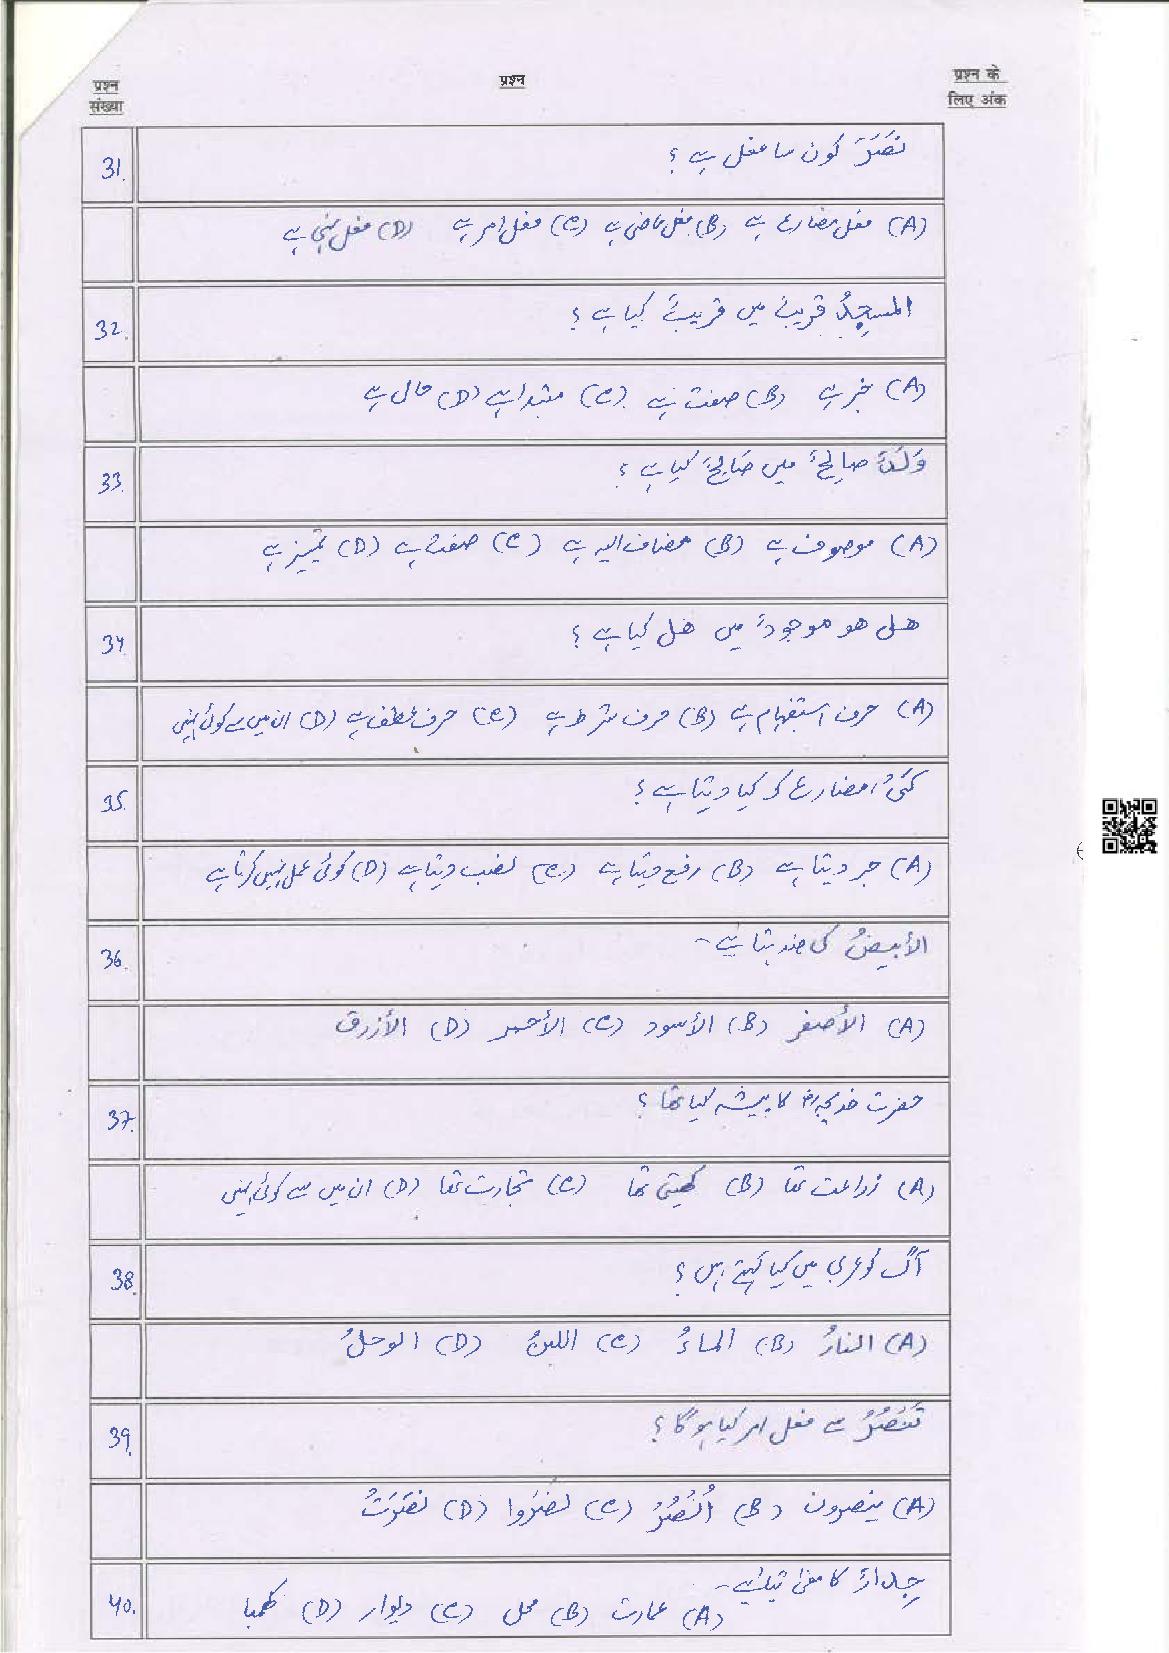 प्रश्न संख्या
प्रश्न
प्रश्न के लिए अंक
31. نَصَرَ کون سا فعل ہے ؟
(A) فعل مضارع ہے (B) فعل ماضی ہے (C) فعل امر ہے (D) فعل نہی ہے
32. المسجدُ قریبٌ میں قریبٌ کیا ہے ؟
(A) خبر ہے (B) صفت ہے (C) مبتدا ہے (D) حال ہے
33. وَلَدٌ صالحٌ میں صَالحٌ کیا ہے ؟
(A) موصوف ہے (B) مضاف الیہ ہے (C) صفت ہے (D) تمیز ہے
34. هل هو موجودٌ میں هل کیا ہے ؟
(A) حرف استفہام ہے (B) حرف شرط ہے (C) حرف عطف ہے (D) ان میں سے کوئی نہیں
35. مضارع کو کیا دیتا ہے ؟
(A) جر دیتا ہے (B) رفع دیتا ہے (C) نصب دیتا ہے (D) کوئی عمل نہیں کرتا ہے
36. الأبیضُ کی ضد بتائیے -
(A) الأصفر (B) الأسود (C) الأحمر (D) الأزرق
37. حضرت خدیجہؓ کا پیشہ کیا تھا ؟
(A) زراعت تھا (B) کھیتی تھا (C) تجارت تھا (D) ان میں سے کوئی نہیں
38. آگ کو عربی میں کیا کہتے ہیں ؟
(A) النارُ (B) الماءُ (C) اللبنُ (D) الوحلُ
39. تَنْصُرُ سے فعل امر کیا ہوگا ؟
(A) ینصرون (B) اُنْصُرْ (C) نصَرُوا (D) نصَرَتْ
40. جِدارٌ کا معنی بتائیے -
(A) عمارت (B) محل (C) دیوار (D) کھمبا